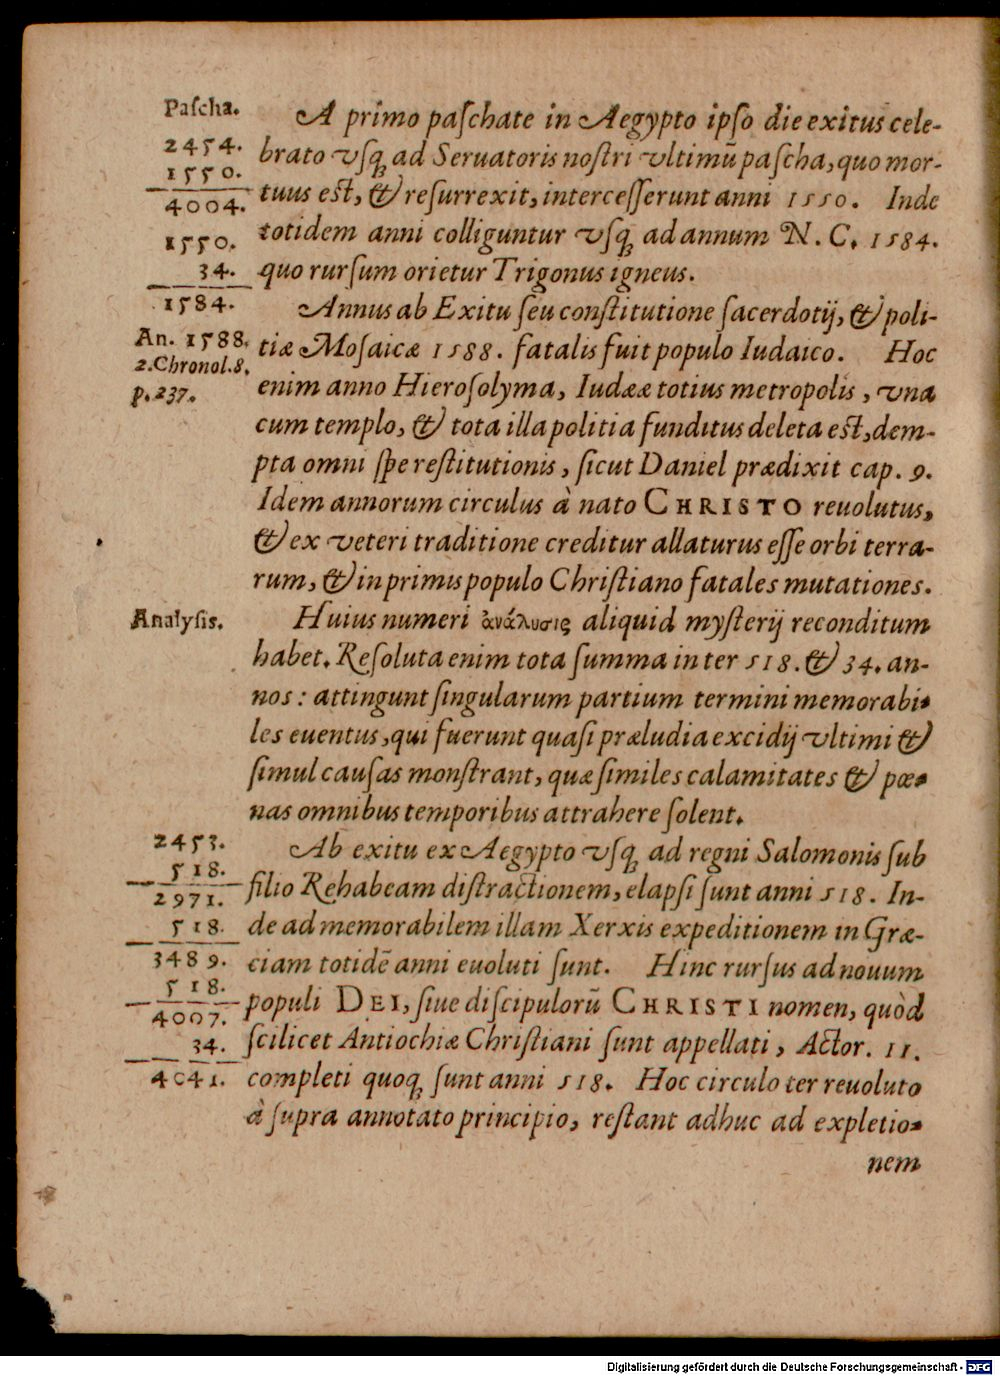 Paſcha.
2454.
1550.
4004.
1550.
34.
1584.
A primo paſchate in Aegypto ipſo die exitus cele-
brato vſq̨ ad Seruatoris noſtri vltimũ paſcha, quo mor-
tuus eſt, & reſurrexit, interceſſerunt anni 1550. Inde
totidem anni colliguntur vſq̨ ad annum N. C. 1584.
quo rurſum orietur Trigonus igneus.
An. 1588.
2. Chronol. 8.
p. 237.
Annus ab Exitu ſeu conſtitutione ſacerdotij, & poli-
tiæ Moſaicæ 1588. fatalis fuit populo Iudaico. Hoc
enim anno Hieroſolyma, Iudææ totius metropolis, vna
cum templo, & tota illa politia funditus deleta eſt, dem-
pta omni ſpe reſtitutionis, ſicut Daniel prædixit cap. 9.
Idem annorum circulus à nato CHRISTO reuolutus,
& ex veteri traditione creditur allaturus eſſe orbi terra-
rum, & in primis populo Chriſtiano fatales mutationes.
Analyſis.
Huius numeri ἀνάλυσις aliquid myſterij reconditum
habet. Reſoluta enim tota ſumma in ter 518. & 34. an-
nos: attingunt ſingularum partium termini memorabi-
les euentus, qui fuerunt quaſi præludia excidij vltimi &
ſimul cauſas monſtrant, quæ ſimiles calamitates & pœ-
nas omnibus temporibus attrahere ſolent.
2453.
518.
2971.
518.
3489.
518.
4007.
34.
4041.
Ab exitu ex Aegypto vſq̨ ad regni Salomonis ſub
filio Rehabeam diſtractionem, elapſi ſunt anni 518. In-
de ad memorabilem illam Xerxis expeditionem in Græ-
ciam totidẽ anni euoluti ſunt. Hinc rurſus ad nouum
populi DEI, ſiue diſcipulorũ CHRISTI nomen, quòd
ſcilicet Antiochiæ Chriſtiani ſunt appellati, Actor. 11.
completi quoq̨ ſunt anni 518. Hoc circulo ter reuoluto
à ſupra annotato principio, reſtant adhuc ad expletio-
nem
Digitalisierung gefördert durch die Deutsche Forschungsgemeinschaft - DFG